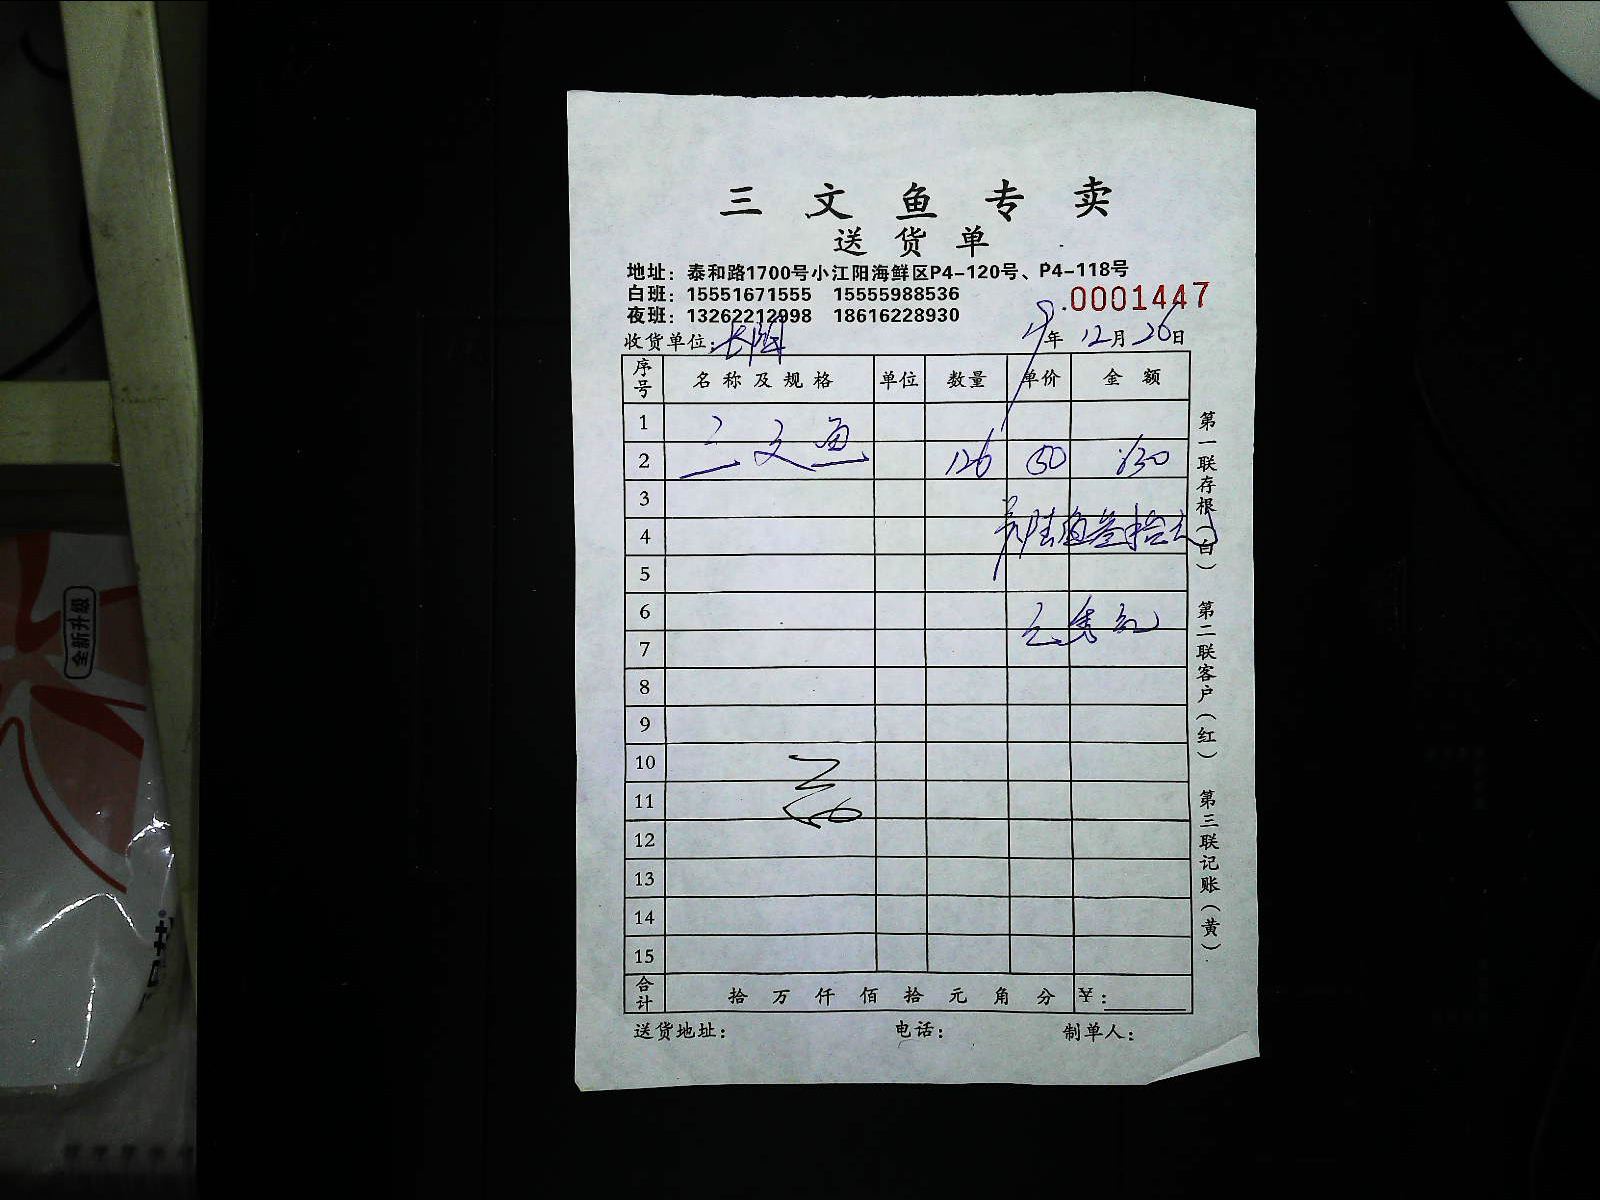 三文鱼专卖
送货单
地址：泰和路1700号小江阳海鲜区P4-120号、P4-118号
白班：15551671555 15555988536
.0001447
夜班：13262212998 18616228930
收货单位： 年 12月26日
序号 名称及规格 单位 数量 单价 金额
1
2 三文鱼 126 50 630
3
4 陆佰叁拾元
5
6
7
8
9
10
11
12
13
14
15
合计 拾 万 仟 佰 拾 元 角 分 ¥：
送货地址： 电话： 制单人：
第一联存根（白） 第二联客户（红） 第三联记账（黄）
全新升级